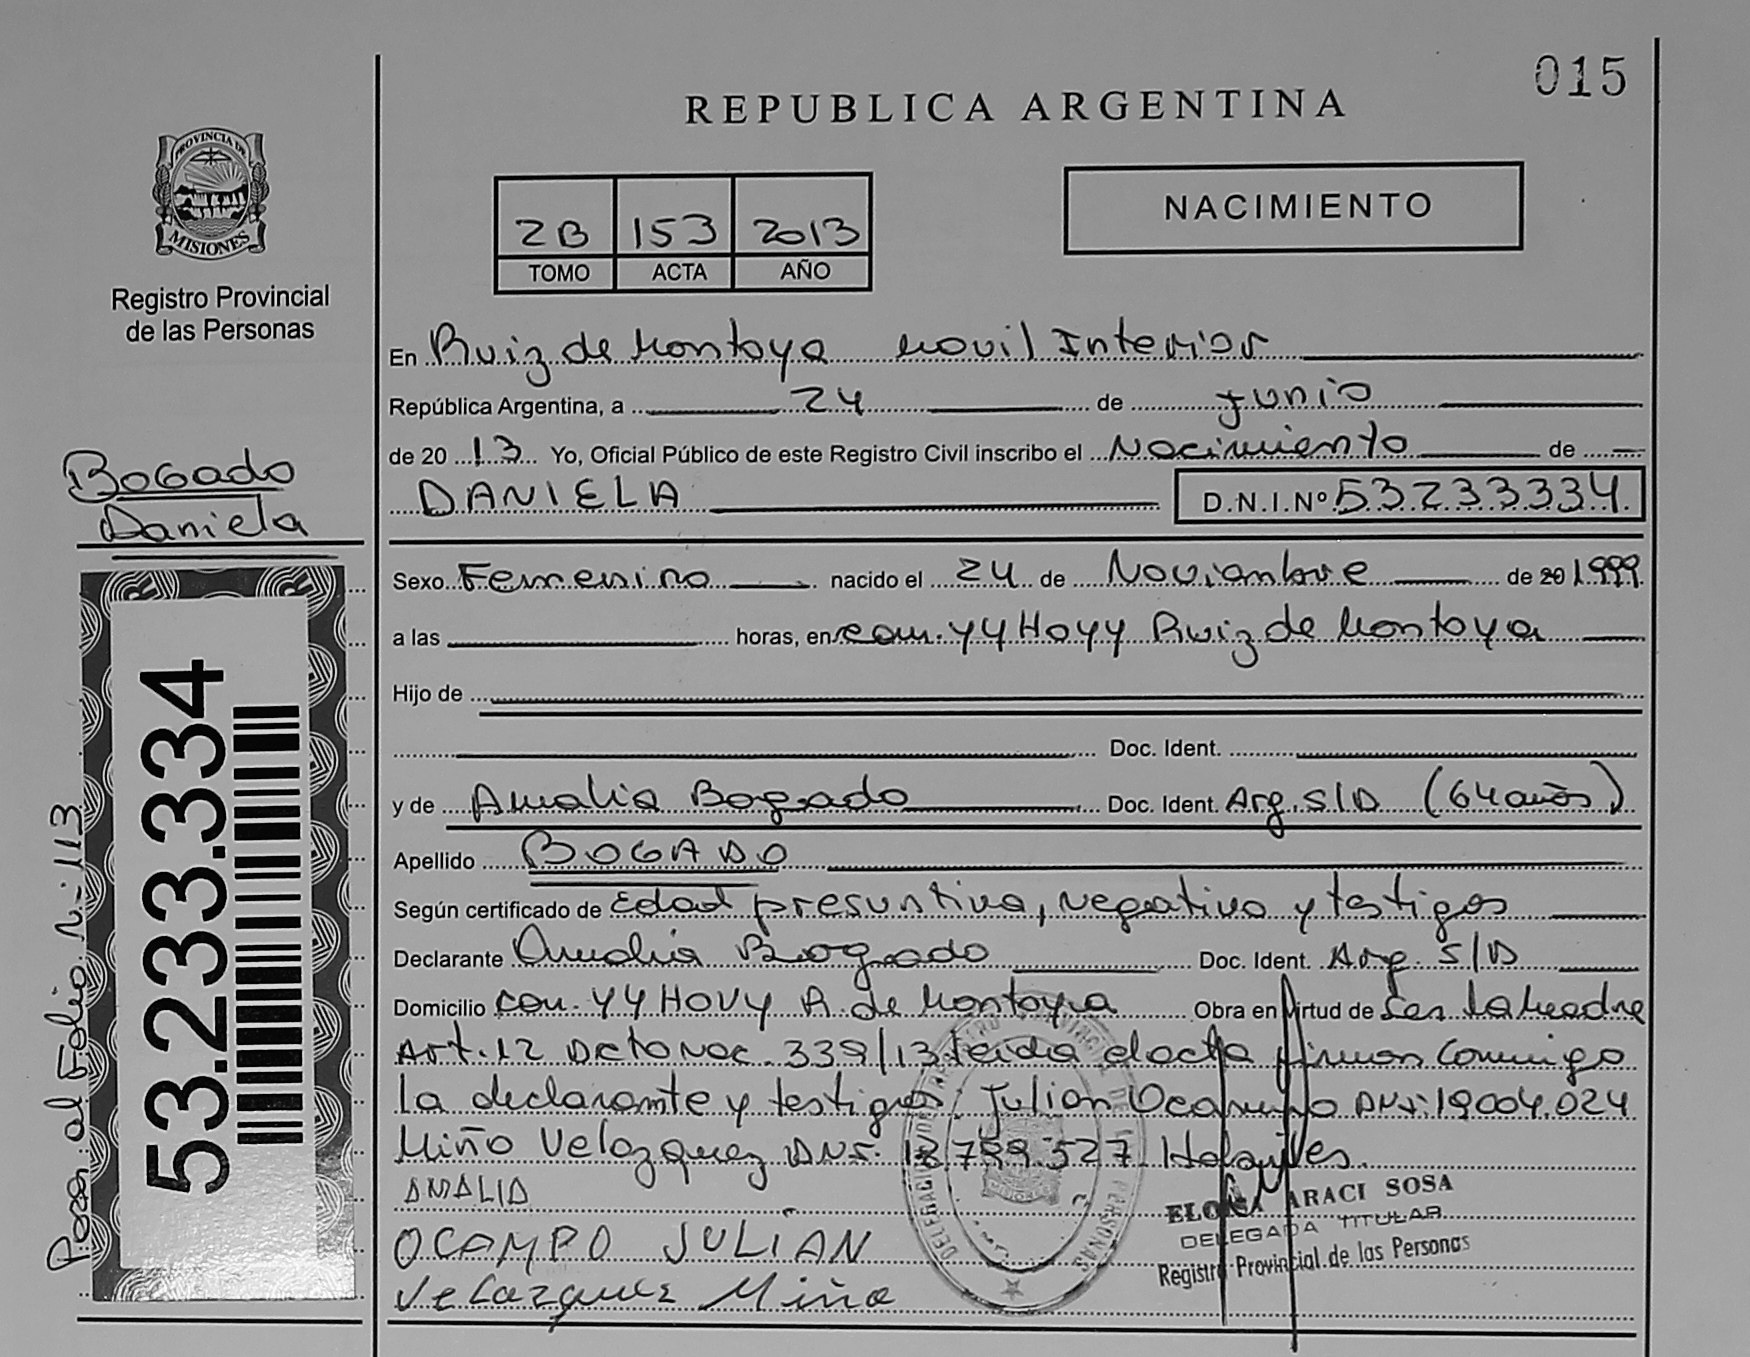 015
REPUBLICA ARGENTINA
PROVINCIA DE
MISIONES
Registro Provincial
de las Personas
2B 153 2013
TOMO ACTA AÑO
NACIMIENTO
En Ruiz de Montoya Movil Interior
República Argentina, a 24 de Junio
de 20 13 Yo, Oficial Público de este Registro Civil inscribo el Nacimiento de
DANIELA D.N.I.Nº 53233334
Bogado
Daniela
Sexo Femenino nacido el 24 de Noviembre de 20 1999
a las horas, en com. YY Hoyy Ruiz de Montoya
Hijo de
Doc. Ident.
y de Amalia Bogado Doc. Ident. Arg. S/D (64 años)
Apellido BOGADO
Según certificado de Edad presuntiva, negativo y testigos
Declarante Amalia Bogado Doc. Ident. Arg. S/D
Domicilio com. YY HOVY R. de Montoya Obra en virtud de Ser la Madre
Art. 12 Dcto Nac. 339/13 leída el acta firman Conmigo
la declarante y testigos: Julian Ocampo DNI: 19004.024
Miño Velazquez DNI. 18.799.527 Hábiles
AMALIA
OCAMPO JULIAN
Velazquez Miño
ELOISA ARACI SOSA
DELEGADA TITULAR
Registro Provincial de las Personas
53.233.334
Pasa al Folio Nº 113